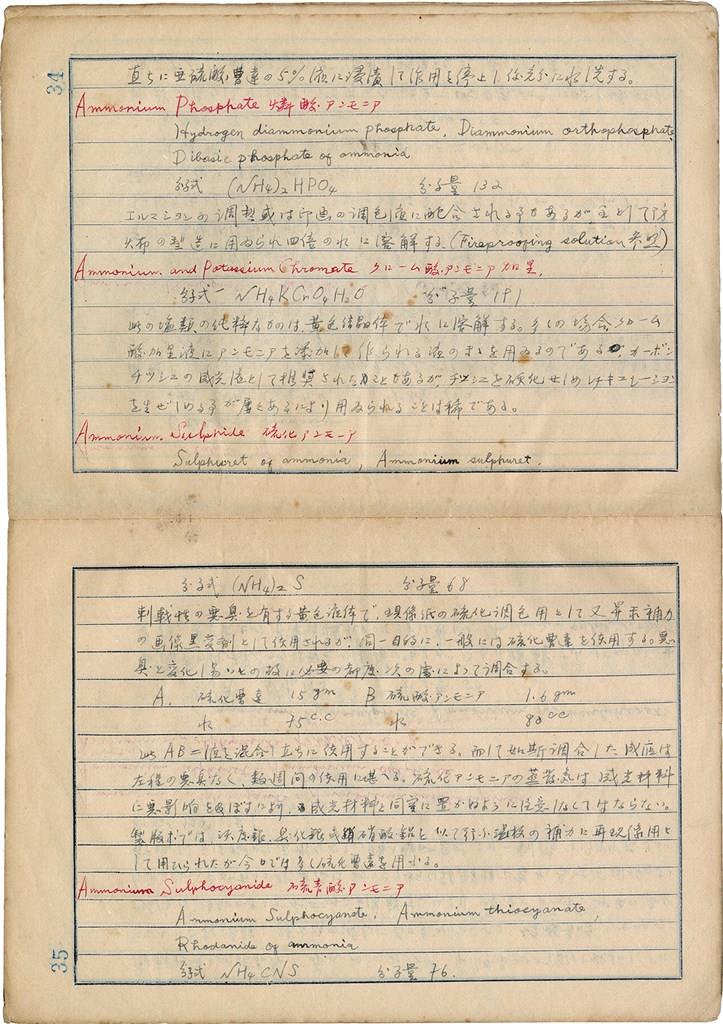 34
直ちに亜硫酸曹達の5%液に浸漬して作用を停止し後充分に水洗する。
Ammonium Phosphate 燐酸アンモニア
Hydrogen diammonium phosphate, Diammonium orthophosphate,
Dibasic phosphate of ammonia
分子式 (NH4)2HPO4 分子量 132
エルマションの調整或は印画の調色液に配合される事があるが主として防
火布の製造に用ゐられ四倍の水に溶解する(Fireproofing solution参照)
Ammonium and Potassium Chromate クローム酸アンモニア加里
分子式 NH4KCrO4H2O 分子量 191
此の塩類の純粋なものは黄色結晶体で水に溶解する。多くの場合クローム
酸加里液にアンモニアを添加して作られる液のまゝを用ゐるのである。カーボン
チッシュの感光液として推奨されたことあるが、チッシュを硬化せしめレチキュレーション
を生ぜしめる事が屡々あるにより用ゐられることは稀である。
Ammonium Sulphide 硫化アンモニア
Sulphuret of ammonia, Ammonium sulphuret.
分子式 (NH4)2S 分子量 68
刺戟性の悪臭を有する黄色液体で、現像紙の硫化調色用として又昇汞補力
の画像黒変剤として使用されるが、同一目的に、一般には硫化曹達を使用する。悪
臭と変化し易いとの故に必要の都度、次の法によって調合する。
A. 硫化曹達 15gm B 硫酸アンモニア 1.6gm
水 75c.c 水 90cc
此AB二液を混合し立ちに使用することができる。而して如斯調合した感液は
左程の悪臭なく、数週間の使用に堪へる。硫化アンモニアの蒸気は感光材料
に悪影響を及ぼすにより、感光材料と同室に置かぬように注意しなくてはならない。
製版すでは、沃度銀、臭化銀或硝酸銀を以て行ふ湿板の補力に再現像用と
して用ひられたが今日では多く硫化曹達を用ふる。
Ammonium Sulphocyanide 硫青酸アンモニア
Ammonium Sulphocyanate, Ammonium thiocyanate,
Rhodanide of ammonia
分子式 NH4CNS 分子量 76.
35